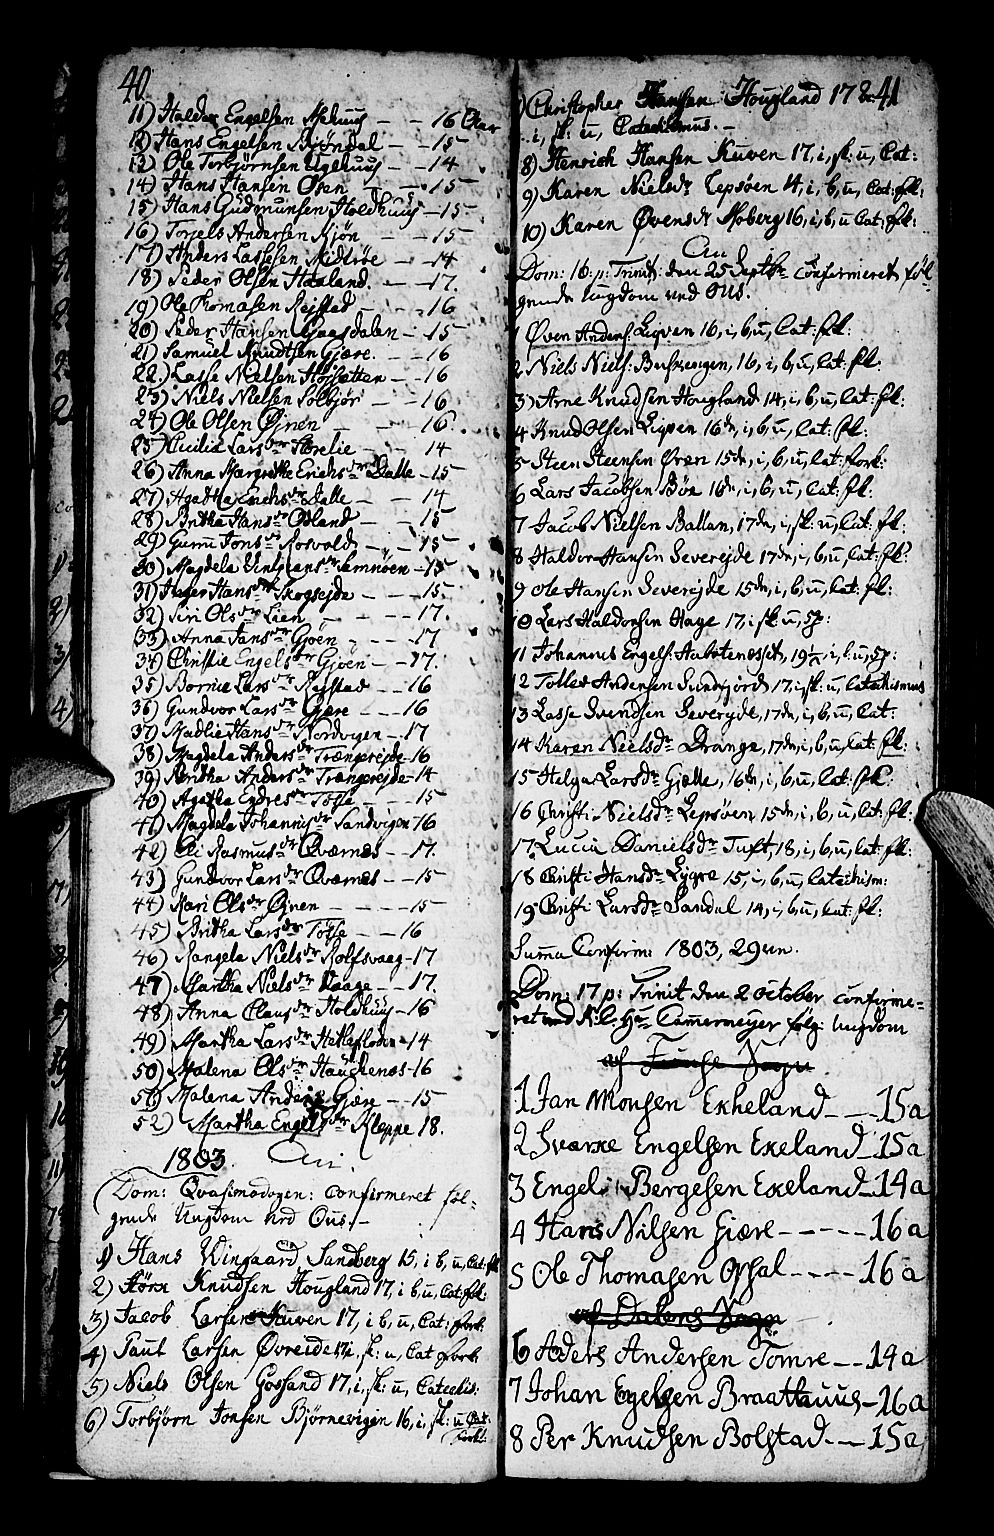 40
11) Haldor Engelsen Mehuus — — 16 Aar
12) Hans Engelsen Biøndal — — 15
13) Ole Torbjørnsen Egehuus — 14
14) Hans Hansen Osen — — 15
15) Hans Gudmunsen Holdhuus — 15
16) Torjels Andersen Kjøn — — 15
17) Anders Lassesen Midtvøe — — 14
18) Peder Olsen Haaland. — — 17.
19) Ole Thomasen Reistad — — 16
20) Peder Hansen Gaasdalen — 15
21) Samuel Knudtsen Gjære. — — 16
22.) Lasse Nielsen Høysetten — — 16
23) Niels Nielsen Solbjør — — 16
24) Ole Olsen Øjnen — — 16
25) Cicilia Larsdr Hørelie — — 14
26) Anna Margrethe Erichsdr Dalle — 15
27) Agatha Erichsdr Dalle — — 14
28) Britha Hansdr Ødland — — 15
29) Guru Jonsdr Rosvold — — 15
30) Magdela dr Samnöen — 15
31) Hansdr Skogseyde — — 15
32) Siri Olsdr Lien — — 17.
33) Anna Jansdr Gjøen — — 17
34) Christie Engelsdr Gjöen — — 17.
35) Bornie Larsdr Reistad — — 16
36) Gundvor Larsdr Gjære — — 16
37) Madlie Hansdr Nordvigen — 17
38) Magdela Andersdr Trængerejde 16
39) Britha Andersdr Trængerejde 14
40) Agatha Endresdr Tøsse — — 15
41) Magdela Johannisdr Sandvigen 16
42) Eli Rasmusdr Qværnes — — 17.
43) Gundvor Larsdr Qværnes — — 15
44) Mari Olsdr Øjnen — — — 15
45) Britha Larsdr Tøsse — — 16
46) Rangela Nielsdr Rolfsvaag — 17
47) Martha Nielsdr Vaage — — 17.
48) Anna Clausdr Holdhuus — 16
49) Martha Larsdr Hetleflodten — 14
50) Malena Olsdr Hauckenæs — 16
51) Malena Andersdr Gjære — — 15
52) Martha Engelsdr Kleppe 18.
1803. Aú.
Dom: Qvasimodogen: confirmeret føl-
gende Ungdom ved Ous. —
1) Hans Wingaard Sandberg 15, i b, u, Cat: fl:
2) Størk Knudsen Hougland 17, i b, u, Cat: fl:
3) Jacob Larsen Kuven 17, i b, u, Cat: fork:
4) Paul Larsen Øvreide 17, i, sk: u, Cat fork:
5) Niels Olsen Gossand 17, i, sk: u, Catechis:
6) Torbjørn Jonsen Bjørnevigen 16, i, sk: u Cat: fork:
41
7) Christopher Hansen Hougland 17 8
i, sk: u, Catechismus. —
8) Henrich Hansen Kuven 17, i, sk: u, Cat:
9) Karen Nielsdr Lepsøen 14, i, b, u, Cat: fl:
10) Karen Øvensdr Moberg 16, i, b, u Cat: fl:
Aú
Dom: 16. p: Trinit: den 25 Septbr confirmeret føl-
gende ungdom ved Ous.
1 Øven Anders: Liqven 16, i, b, u, Cat: fl:
2 Niels Niels: Buskevigen, 16, i, b, u, Cat: fl:
3) Arne Knudsen Hougland 14, i, b, u, Cat: fl:
4 Knud Olsen Liqven 16dr, i, b, u, Cat: fl:
5 Steen Steensen Øvren 15dr, i, b, u, Cat: fork:
6 Lars Jacobsen Bøe 16dr, i, b, u, Cat: fl:
7 Jacob Nielsen Ballan, 17dr, i, sk: u, Cat: fl:
8 Haldor Hansen Severejde 17dr, i, b, u, Cat: fl:
9 Ole Hansen Severejde 15dr, i, b, u, Cat: fl:
10 Lars Haldorsen Hage 17, i sk u, sp:
11 Johannes Engels: 19½, i, b: u, sp:
12 Tollev Andersen Sundfjord 17, i, sk: u, Catechismus
13 Lasse Svendsen Severejde, 17dr, i, b, u, Cat:
14 Karen Nielsdr Drange, 17dr, i, b, u, Cat: fl:
15 Helga Larsdr Gjelle, 16dr, i, b, u, Cat: fl:
16 Christi: Nielsdr Lepsøen 15dr, i, b, u, Cat: fl:
17. Lucia Danielsdr Tuft, 18, i, b, u, Cat: fl:
18 Christi: Hansdr Lygre 15, i, b, u, Catechism:
19 Christi Larsdr Sandal 14, i, b, u, Cat: fl:
Suma Confirm: 1803, 29 un.
Dom: 17 p: Trinit den 2 october confirme-
ret ved Hr. Cammermeyer følg: ungdom
af Fuuse Sogn
1 Jan Monsen Ekheland — — 15 a
2 Sværke Engelsen Exeland — 15 a
3 Engel Bergesen Exeland — 14 a
4 Hans Nilsen Giære — — — 16 a
5 Ole Thomasen Opsal — — — 16 a
af Dalens Sogn
6 Aders Andersen Tomre — — 14 a
7 Johan Egelsen Braathuus — 16 a
8 Per Knudsen Bolstad — — 15 a